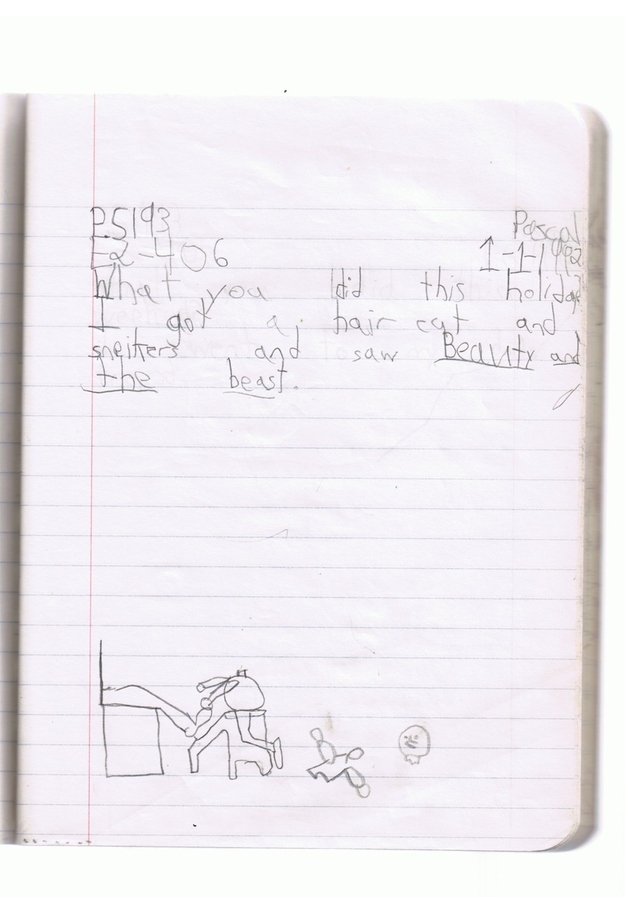 PS193 Pascal
E2-406 1-1-1992
What you did this holiday
I got a hair cat and
sneikers and saw Beauty and
the beast.